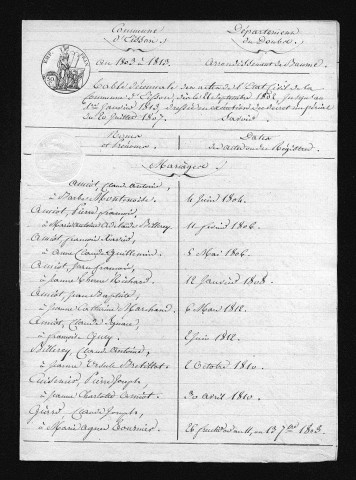 Commune
d'
Département
du Doubs
an 1803 à 1813.
Arrondissement de Baume
Table décennale des actes de l'Etat Civil de la
Commune d' depuis le septembre 1802 jusqu'au
1er Janvier 1813, dressée en exécution du décret impérial
du 20 Juillet 1807. Savoir
Noms
et Prénoms
Dates
des actes ou des Registres
Mariages
Amiot, Claude Antoine,
à Barbe 4 Juin 1804.
Amiot, Pierre François,
à Marie 11 février 1806.
Amiot, François Xavier,
à Anne Claude Guillemin. 5 Mai 1806.
Amiot, Jean François,
à Jeanne Richard. 12 Janvier 1808.
Amiot, Jean Baptiste,
à Jeanne Catherine Marchand. 6 Mai 1812.
Amiot, Claude Ignace,
à Françoise 2 Juin 1812.
Billerey, Claude Antoine,
à Jeanne Ursule 2 Octobre 1810.
Cuisenier, Pierre Joseph,
à Jeanne Charlotte Amiot. 30 avril 1810.
Girard Claude Joseph,
à Marie Agnès Tournier. 26 fructidor an 11, ou 13 7bre 1803.